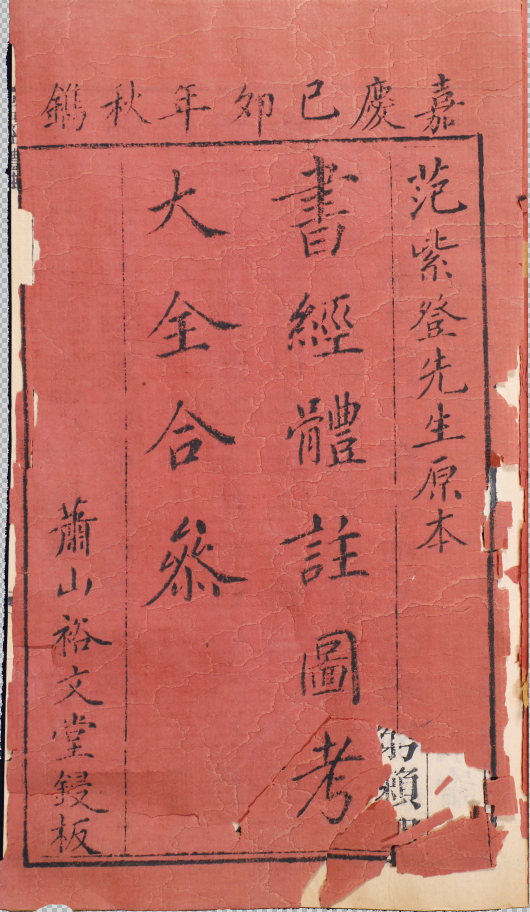 嘉慶己卯年秋鐫
范紫登先生原本
書經體註圖考
大全合叅
蕭山裕文堂鋟板